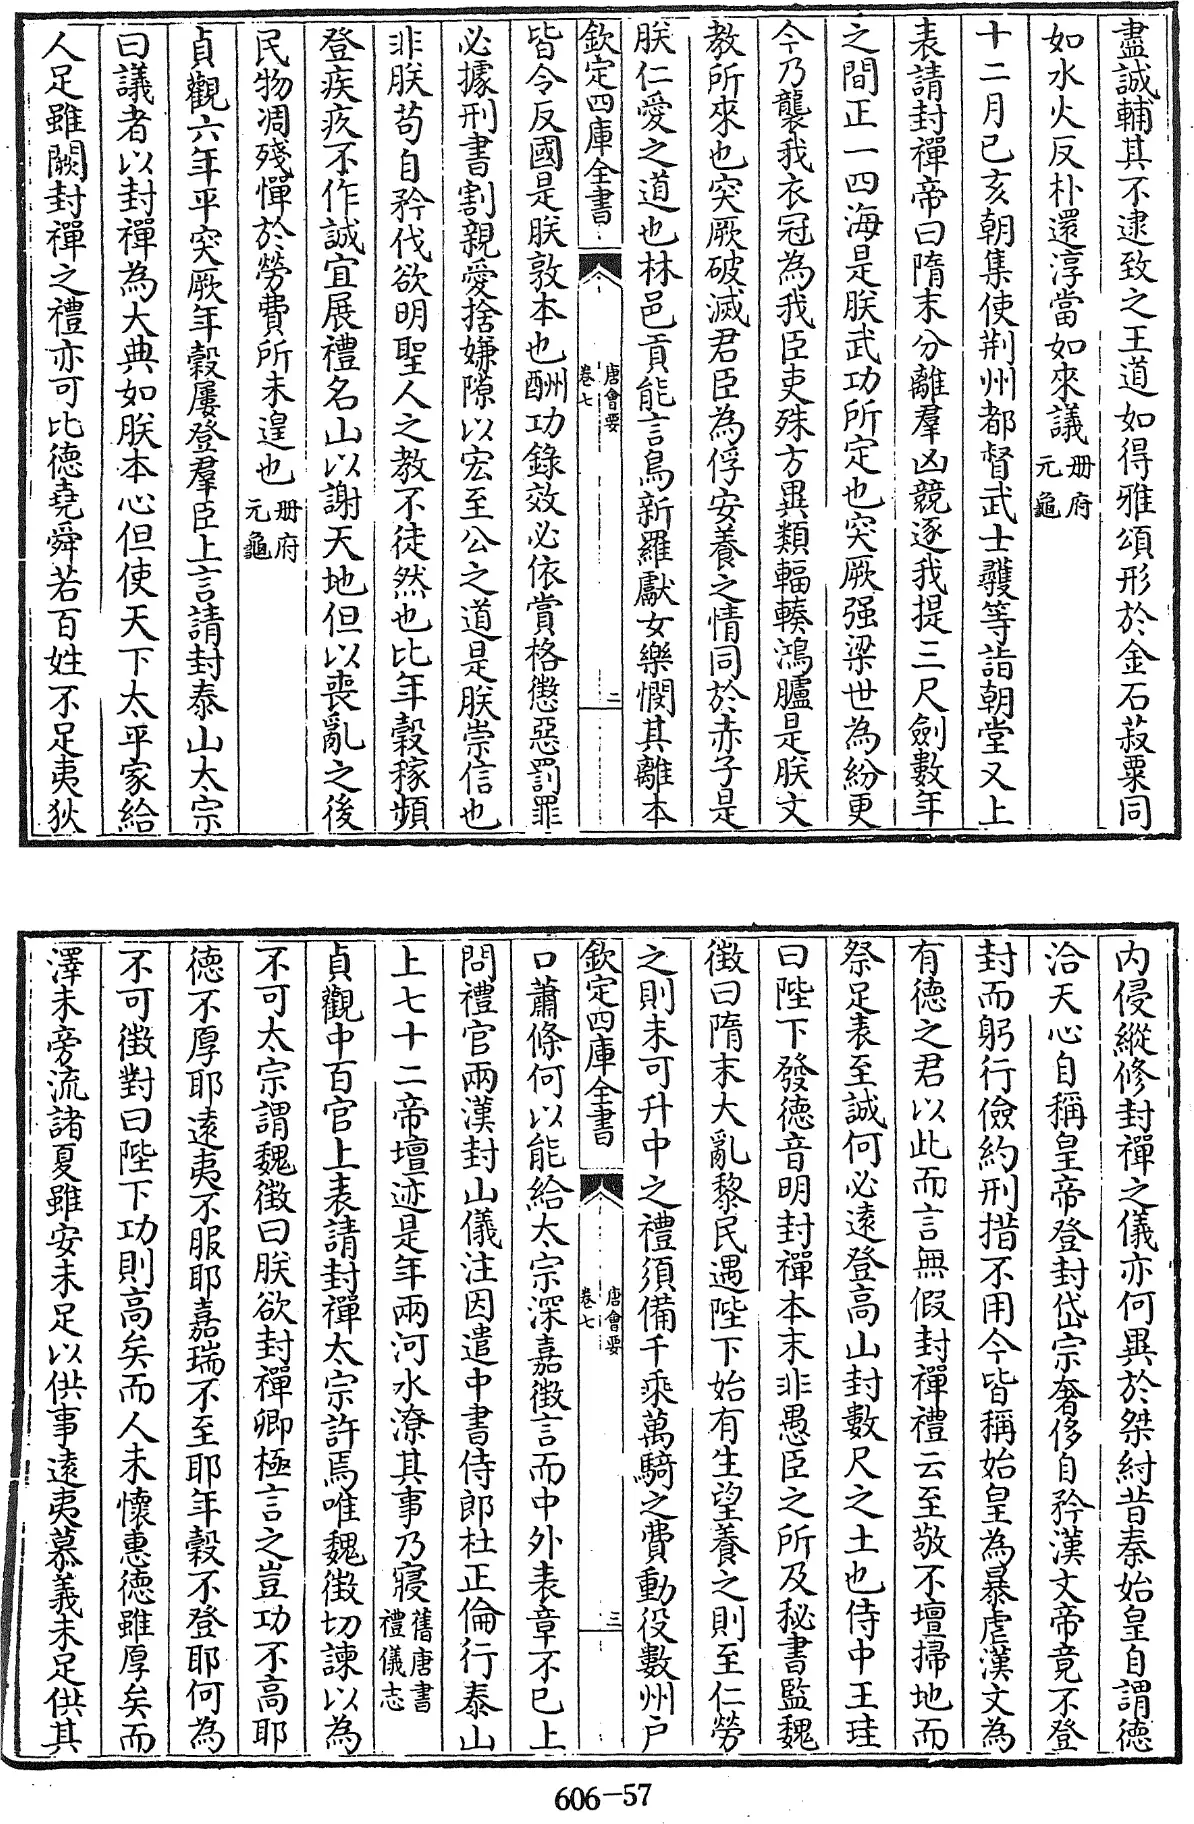 盡誠輔其不逮致之王道如得雅頌形於金石菽粟同
如水火反朴還淳當如來議冊府元龜
十二月己亥朝集使荆州都督武士彠等詣朝堂又上
表請封禪帝曰隋末分離羣凶競逐我提三尺劍數年
之間正一四海是朕武功所定也突厥强梁世為紛更
今乃襲我衣冠為我臣吏殊方異類輻輳鴻臚是朕文
教所來也突厥破滅君臣為俘安養之情同於赤子是
朕仁愛之道也林邑貢能言鳥新羅獻女樂憫其離本
欽定四庫全書
唐會要
卷七
二
皆令反國是朕敦本也酬功錄效必依賞格懲惡罰罪
必據刑書割親愛捨嫌隙以宏至公之道是朕崇信也
非朕苟自矜伐欲明聖人之教不徒然也比年穀稼頻
登疾疫不作誠宜展禮名山以謝天地但以喪亂之後
民物凋殘憚於勞費所未遑也冊府元龜
貞觀六年平突厥年穀屢登羣臣上言請封泰山太宗
曰議者以封禪為大典如朕本心但使天下太平家給
人足雖闕封禪之禮亦可比德堯舜若百姓不足夷狄
內侵縱修封禪之儀亦何異於桀紂昔秦始皇自謂德
洽天心自稱皇帝登封岱宗奢侈自矜漢文帝竟不登
封而躬行儉約刑措不用今皆稱始皇為暴虐漢文為
有德之君以此而言無假封禪禮云至敬不壇掃地而
祭足表至誠何必遠登高山封數尺之土也侍中王珪
曰陛下發德音明封禪本末非愚臣之所及秘書監魏
徵曰隋末大亂黎民遇陛下始有生望養之則至仁勞
之則未可升中之禮須備千乘萬騎之費動役數州戶
欽定四庫全書
唐會要
卷七
三
口蕭條何以能給太宗深嘉徵言而中外表章不已上
問禮官兩漢封山儀注因遣中書侍郎杜正倫行泰山
上七十二帝壇迹是年兩河水潦其事乃寢舊唐書禮儀志
貞觀中百官上表請封禪太宗許焉唯魏徵切諫以為
不可太宗謂魏徵曰朕欲封禪卿極言之豈功不高耶
德不厚耶遠夷不服耶嘉瑞不至耶年穀不登耶何為
不可徵對曰陛下功則高矣而人未懷惠德雖厚矣而
澤未旁流諸夏雖安未足以供事遠夷慕義未足供其
606-57